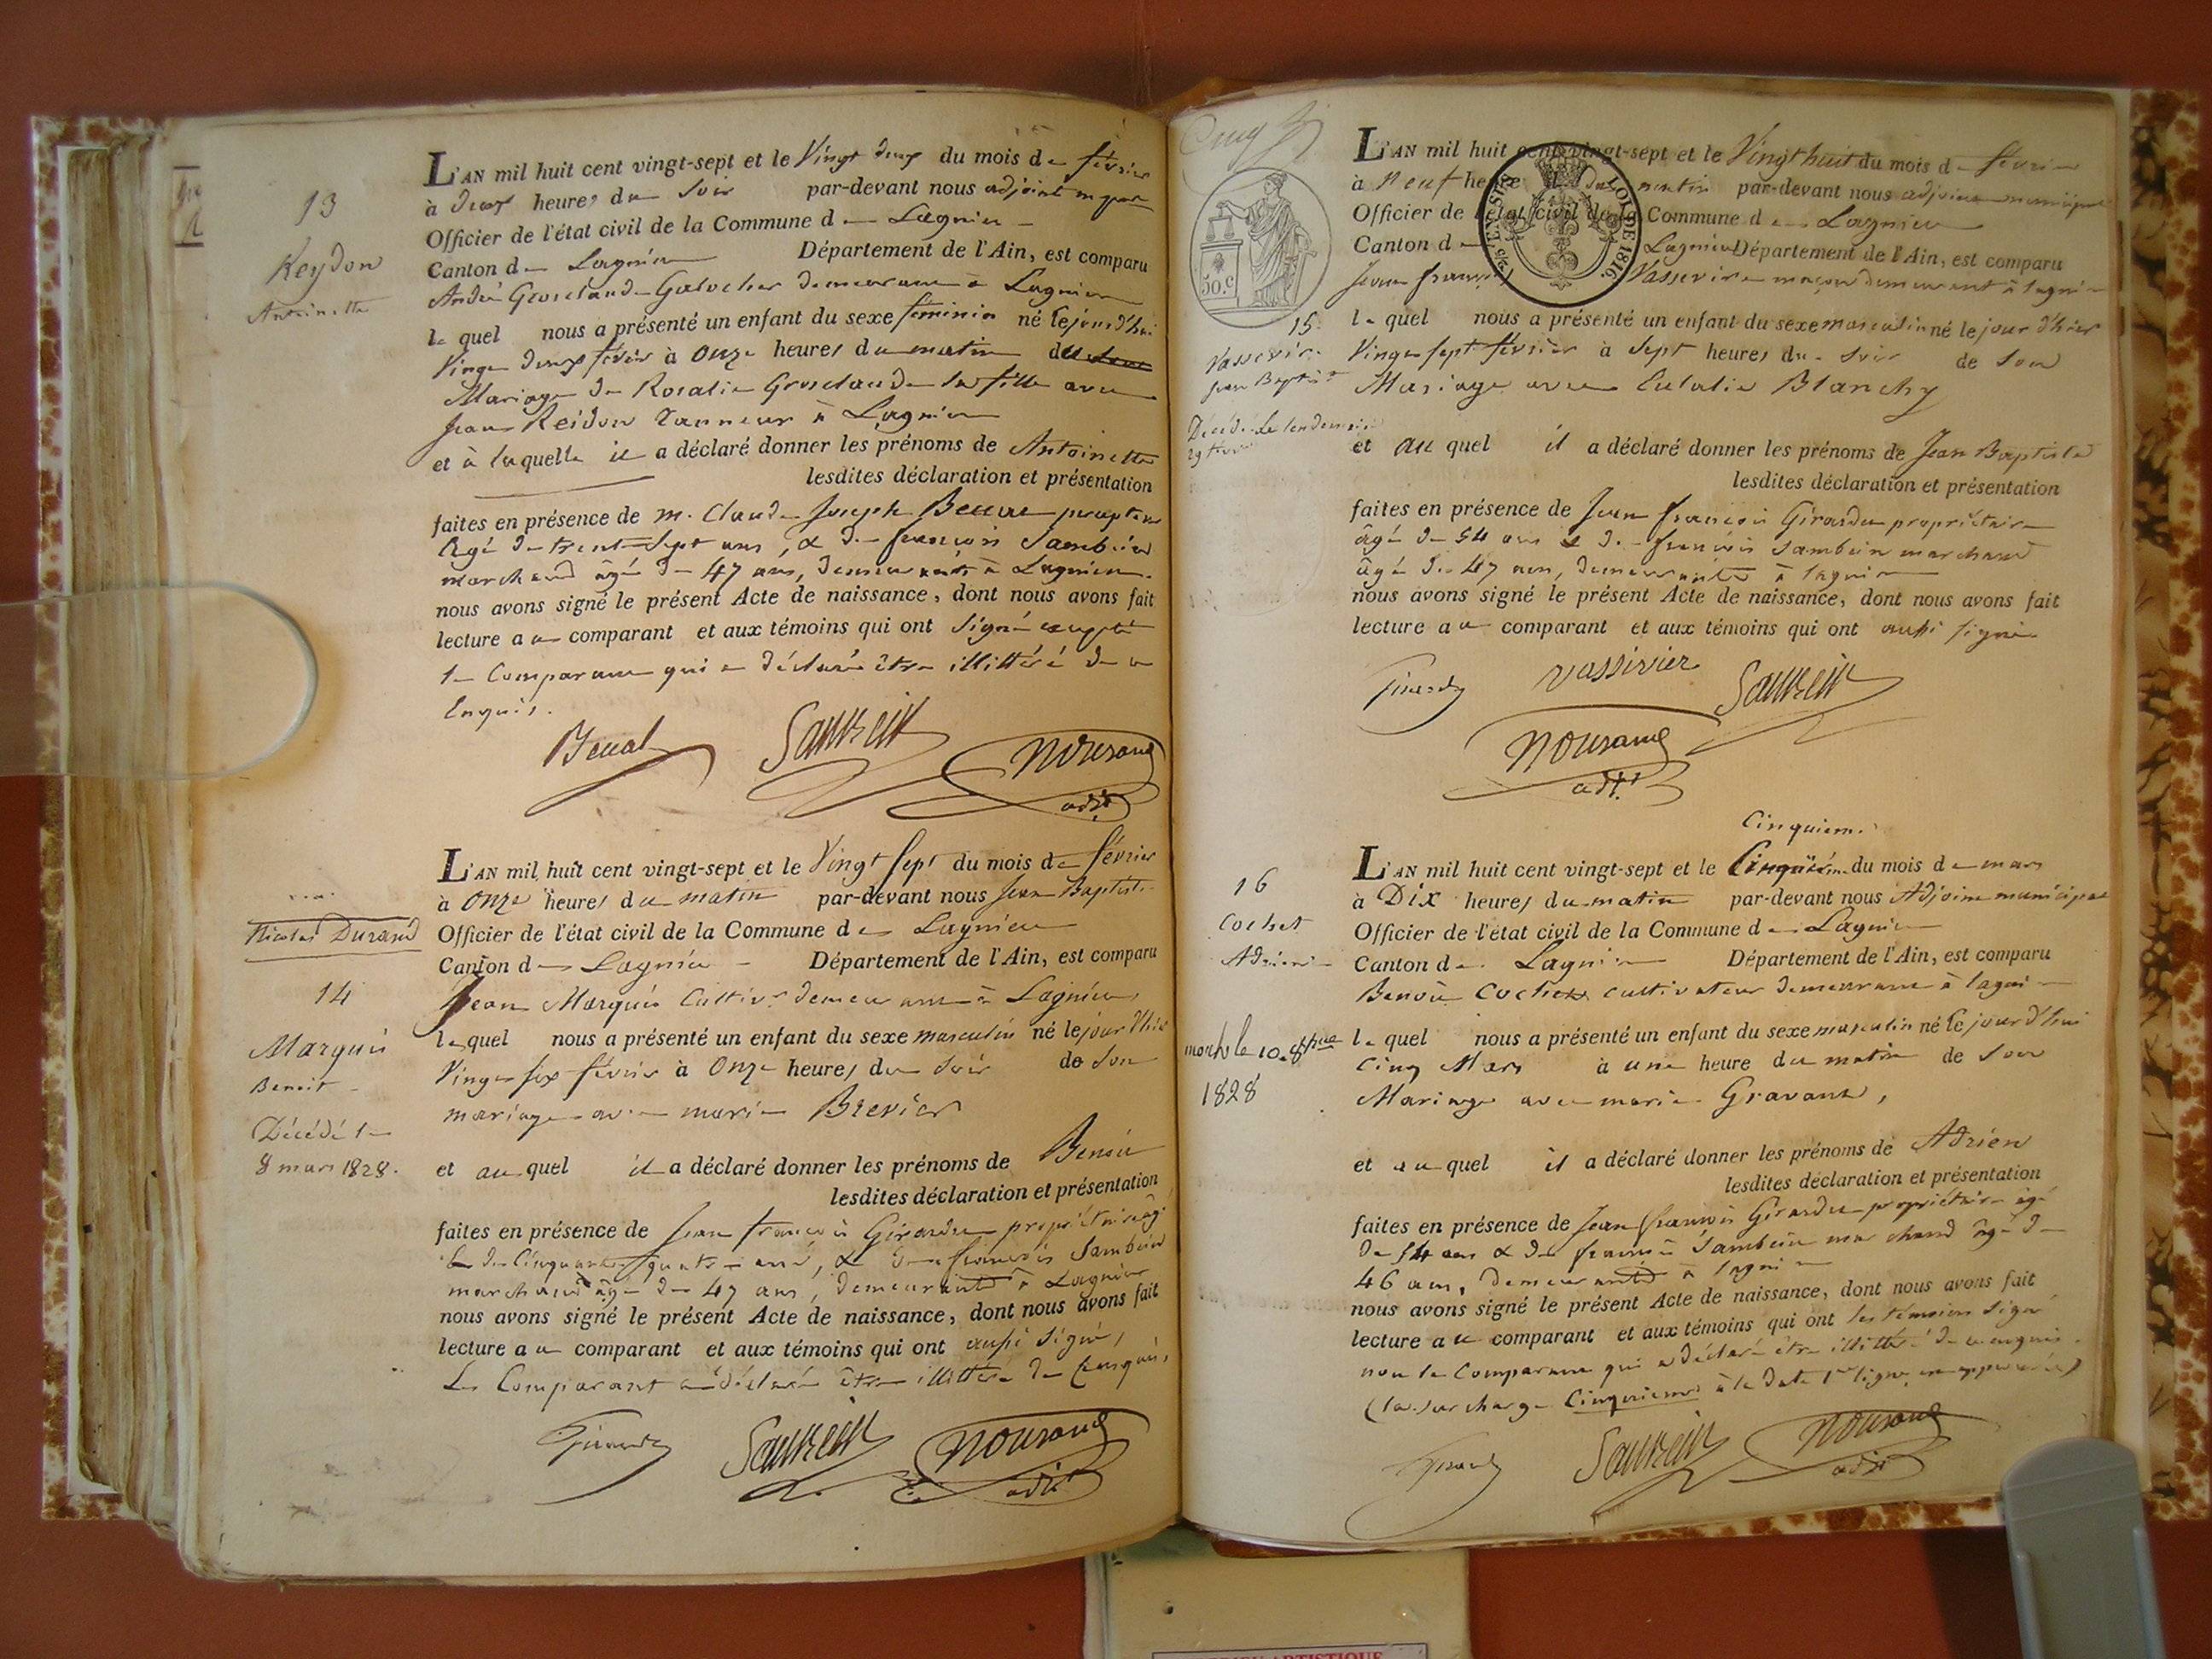 13
Reydon
Antoinette
L'AN mil huit cent vingt-sept et le Vingt deux du mois de février
à deux heures du soir par-devant nous adjoint
Officier de l'état civil de la Commune de Lagnieu
Canton de Lagnieu Département de l'Ain, est comparu
André Grosclaude Galocher demeurant à Lagnieu
le quel nous a présenté un enfant du sexe féminin né le jourd'hui
Vingt deux février à Onze heures du matin
Mariage de Rosalie Grosclaude sa fille avec
Jean Reidon Tanneur à Lagnieu
et à laquelle il a déclaré donner les prénoms de Antoinette
lesdites déclaration et présentation
faites en présence de M. Claude Joseph
âgé de trente sept ans, & de françois Sambuin
marchand âgé de 47 ans, demeurants à Lagnieu.
nous avons signé le présent Acte de naissance, dont nous avons fait
lecture au comparant et aux témoins qui ont signé excepté
le Comparant qui a déclaré être illittéré de ce
Enquis.
adjt
Nicolas Durand
14
Marquis
Benoit
Décédé le
8 mars 1828.
L'AN mil huit cent vingt-sept et le Vingt sept du mois de février
à Onze heures du matin par-devant nous Jean Baptiste
Officier de l'état civil de la Commune de Lagnieu
Canton de Lagnieu Département de l'Ain, est comparu
Jean Marquis Cultivr demeurant à Lagnieu,
lequel nous a présenté un enfant du sexe masculin né le jour d'hier
Vingt six février à Onze heures du soir de son
mariage avec marie Brevier
et au quel il a déclaré donner les prénoms de Benoit
lesdites déclaration et présentation
faites en présence de Jean François Girardu propriétaire âgé
de Cinquante quatre ans, & de françois Sambuin
marchand âgé de 47 ans, demeurants à Lagnieu
nous avons signé le présent Acte de naissance, dont nous avons fait
lecture au comparant et aux témoins qui ont aussi signé,
Le Comparant a déclaré être illittéré de ce Enquis,
adjt
50.c
EN SUS
LOI DE 1816
15.
Jean Baptiste
Décédé le lendemain
L'AN mil huit cent vingt-sept et le Vingt huit du mois de février
à Neuf heures du matin par-devant nous adjoint municipal
Officier de l'état civil de la Commune de Lagnieu
Canton de Lagnieu Département de l'Ain, est comparu
Jean françois Vassevire maçon demeurant à lagnieu
le quel nous a présenté un enfant du sexe masculin né le jour d'hier
Vingt sept février à Sept heures du soir de son
Mariage avec Eulalie Blanchy
et au quel il a déclaré donner les prénoms de Jean Baptiste
lesdites déclaration et présentation
faites en présence de Jean françois Girardu propriétaire
âgé de 54 ans & de françois Sambuin marchand
âgé de 47 ans, demeurants à lagnieu
nous avons signé le présent Acte de naissance, dont nous avons fait
lecture au comparant et aux témoins qui ont aussi signé
vassivier
adjt
16
Cochet
Adrien
mort le 10
1828
Cinquieme
L'AN mil huit cent vingt-sept et le Cinquième du mois de mars
à Dix heures du matin par-devant nous Adjoint municipal
Officier de l'état civil de la Commune de Lagnieu
Canton de Lagnieu Département de l'Ain, est comparu
Benoit Cochet cultivateur demeurant à lagnieu
le quel nous a présenté un enfant du sexe masculin né le jourd'hui
Cinq Mars à une heure du matin de son
Mariage avec marie Gravant,
et au quel il a déclaré donner les prénoms de Adrien
lesdites déclaration et présentation
faites en présence de Jean françois Girardu propriétaire âgé
de 54 ans & de françois Sambuin marchand âgé de
46 ans, demeurants à lagnieu
nous avons signé le présent Acte de naissance, dont nous avons fait
lecture au comparant et aux témoins qui ont les témoins signé
non le Comparant qui a déclaré être illittéré de ce enquis.
(la surcharge Cinquieme à la date 1re ligne approuvée)
adjt